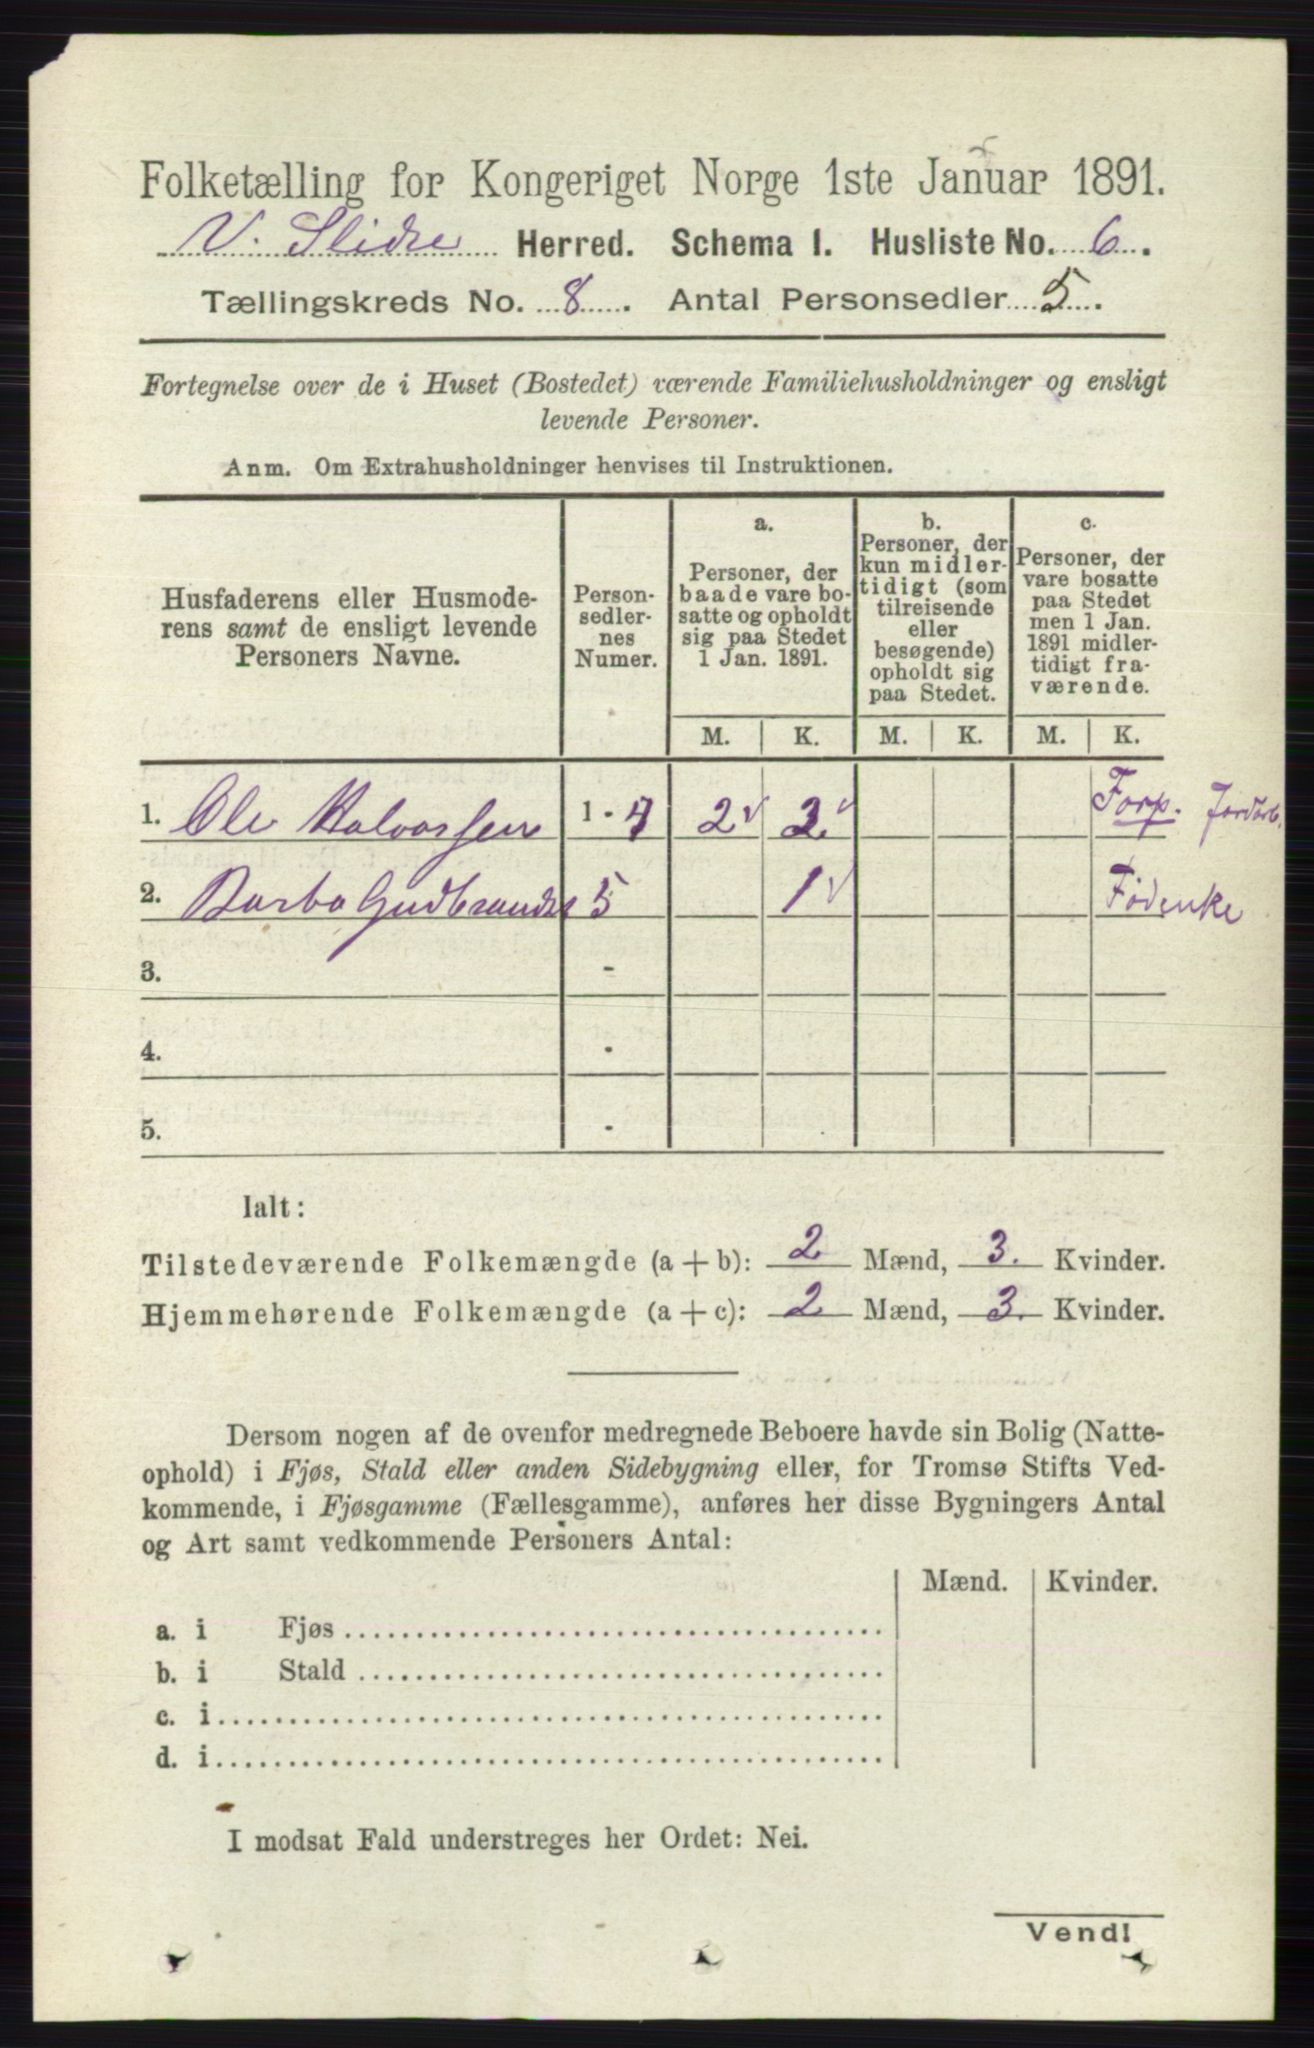 Folketælling for Kongeriget Norge 1ste Januar 1891.
V. Slidre Herred. Schema I. Husliste No. 6.
Tællingskreds No. 8. Antal Personsedler 5.
Fortegnelse over de i Huset (Bostedet) værende Familiehusholdninger og ensligt
levende Personer.
Anm. Om Extrahusholdninger henvises til Instruktionen.
Husfaderens eller Husmode-
rens samt de ensligt levende
Personers Navne.
Person-
sedler-
nes
Numer.
a.
Personer, der
baade vare bo-
satte og opholdt
sig paa Stedet
1 Jan. 1891.
b.
Personer, der
kun midler-
tidigt (som
tilreisende
eller
besøgende)
opholdt sig
paa Stedet.
c.
Personer, der
vare bosatte
paa Stedet
men 1 Jan.
1891 midler-
tidigt fra-
værende.
M. K. M. K. M. K.
1. Ole Halvorssen 1 - 4 2 Forp. Jordarb.
2. Barbo Gudbrandsd 5 1 Födenke
3. -
4. -
5. -
Ialt:
Tilstedeværende Folkemængde (a + b): 2 Mænd, 3. Kvinder.
Hjemmehørende Folkemængde (a + c): 2 Mænd, 3. Kvinder.
Dersom nogen af de ovenfor medregnede Beboere havde sin Bolig (Natte-
ophold) i Fjøs, Stald eller anden Sidebygning eller, for Tromsø Stifts Ved-
kommende, i Fjøsgamme (Fællesgamme), anføres her disse Bygningers Antal
og Art samt vedkommende Personers Antal:
Mænd. Kvinder.
a. i Fjøs
b. i Stald
c. i
d. i
I modsat Fald understreges her Ordet: Nei.
Vend!